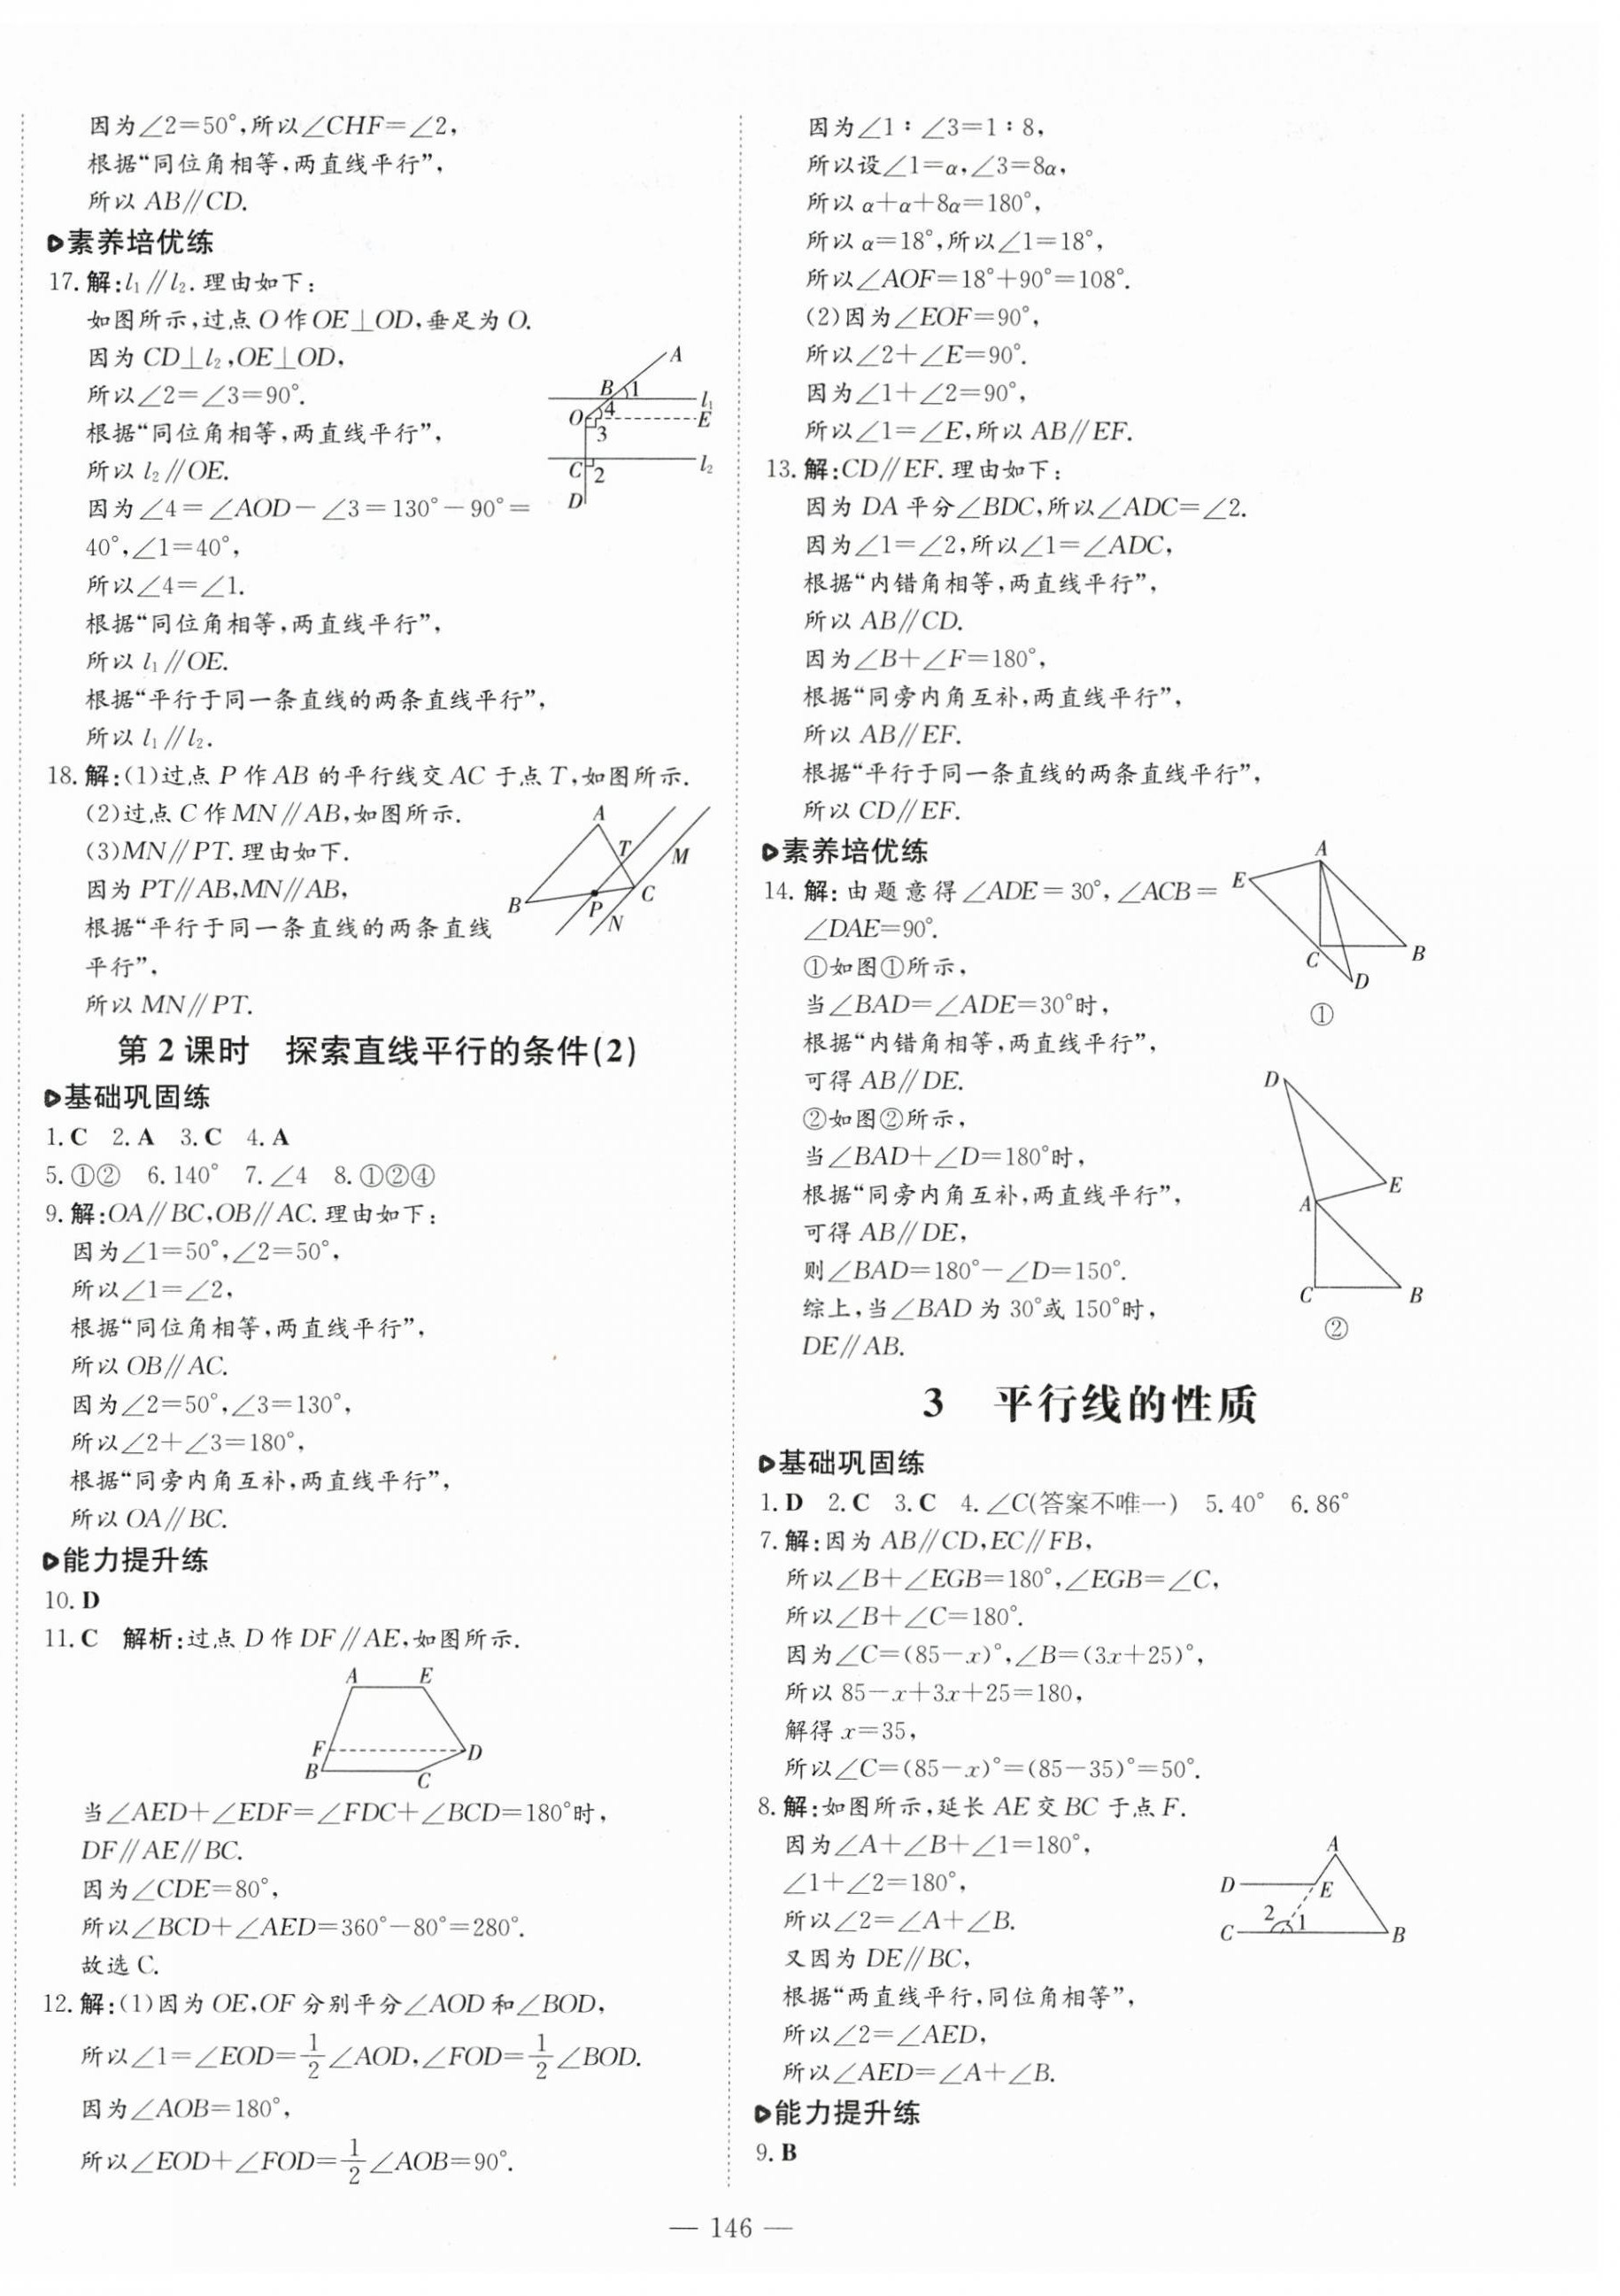 因为∠2=50°,所以∠CHF=∠2,
根据“同位角相等,两直线平行”,
所以 AB∥CD.
素养培优练
17. 解:l₁∥l₂. 理由如下:
如图所示,过点 O 作 OE⊥OD,垂足为 O.
因为 CD⊥l₂,OE⊥OD,
所以∠2=∠3=90°.
根据“同位角相等,两直线平行”,
所以 l₂∥OE.
因为∠4=∠AOD-∠3=130°-90°=
40°,∠1=40°,
所以∠4=∠1.
根据“同位角相等,两直线平行”,
所以 l₁∥OE.
根据“平行于同一条直线的两条直线平行”,
所以 l₁∥l₂.
A
B 1
l₁
O 4
E
3
C 2
l₂
D
18. 解:(1)过点 P 作 AB 的平行线交 AC 于点 T,如图所示.
(2)过点 C 作 MN∥AB,如图所示.
(3)MN∥PT. 理由如下.
因为 PT∥AB,MN∥AB,
根据“平行于同一条直线的两条直线
平行”,
所以 MN∥PT.
A
T
M
B
C
P
N
第 2 课时 探索直线平行的条件(2)
基础巩固练
1. C 2. A 3. C 4. A
5. ①② 6. 140° 7. ∠4 8. ①②④
9. 解:OA∥BC,OB∥AC. 理由如下:
因为∠1=50°,∠2=50°,
所以∠1=∠2,
根据“同位角相等,两直线平行”,
所以 OB∥AC.
因为∠2=50°,∠3=130°,
所以∠2+∠3=180°,
根据“同旁内角互补,两直线平行”,
所以 OA∥BC.
能力提升练
10. D
11. C 解析:过点 D 作 DF∥AE,如图所示.
A E
F D
B
C
当∠AED+∠EDF=∠FDC+∠BCD=180°时,
DF∥AE∥BC.
因为∠CDE=80°,
所以∠BCD+∠AED=360°-80°=280°.
故选 C.
12. 解:(1)因为 OE,OF 分别平分∠AOD 和∠BOD,
所以∠1=∠EOD=1/2∠AOD,∠FOD=1/2∠BOD.
因为∠AOB=180°,
所以∠EOD+∠FOD=1/2∠AOB=90°.
因为∠1∶∠3=1∶8,
所以设∠1=α,∠3=8α,
所以 α+α+8α=180°,
所以 α=18°,所以∠1=18°,
所以∠AOF=18°+90°=108°.
(2)因为∠EOF=90°,
所以∠2+∠E=90°.
因为∠1+∠2=90°,
所以∠1=∠E,所以 AB∥EF.
13. 解:CD∥EF. 理由如下:
因为 DA 平分∠BDC,所以∠ADC=∠2.
因为∠1=∠2,所以∠1=∠ADC,
根据“内错角相等,两直线平行”,
所以 AB∥CD.
因为∠B+∠F=180°,
根据“同旁内角互补,两直线平行”,
所以 AB∥EF.
根据“平行于同一条直线的两条直线平行”,
所以 CD∥EF.
素养培优练
14. 解:由题意得∠ADE=30°,∠ACB=
∠DAE=90°.
①如图①所示,
当∠BAD=∠ADE=30°时,
根据“内错角相等,两直线平行”,
可得 AB∥DE.
②如图②所示,
当∠BAD+∠D=180°时,
根据“同旁内角互补,两直线平行”,
可得 AB∥DE,
则∠BAD=180°-∠D=150°.
综上,当∠BAD 为 30°或 150°时,
DE∥AB.
A
E
C
B
D
①
D
E
A
C B
②
3 平行线的性质
基础巩固练
1. D 2. C 3. C 4. ∠C(答案不唯一) 5. 40° 6. 86°
7. 解:因为 AB∥CD,EC∥FB,
所以∠B+∠EGB=180°,∠EGB=∠C,
所以∠B+∠C=180°.
因为∠C=(85-x)°,∠B=(3x+25)°,
所以 85-x+3x+25=180,
解得 x=35,
所以∠C=(85-x)°=(85-35)°=50°.
8. 解:如图所示,延长 AE 交 BC 于点 F.
因为∠A+∠B+∠1=180°,
∠1+∠2=180°,
所以∠2=∠A+∠B.
又因为 DE∥BC,
根据“两直线平行,同位角相等”,
所以∠2=∠AED,
所以∠AED=∠A+∠B.
A
D E
2 1
C B
能力提升练
9. B
— 146 —